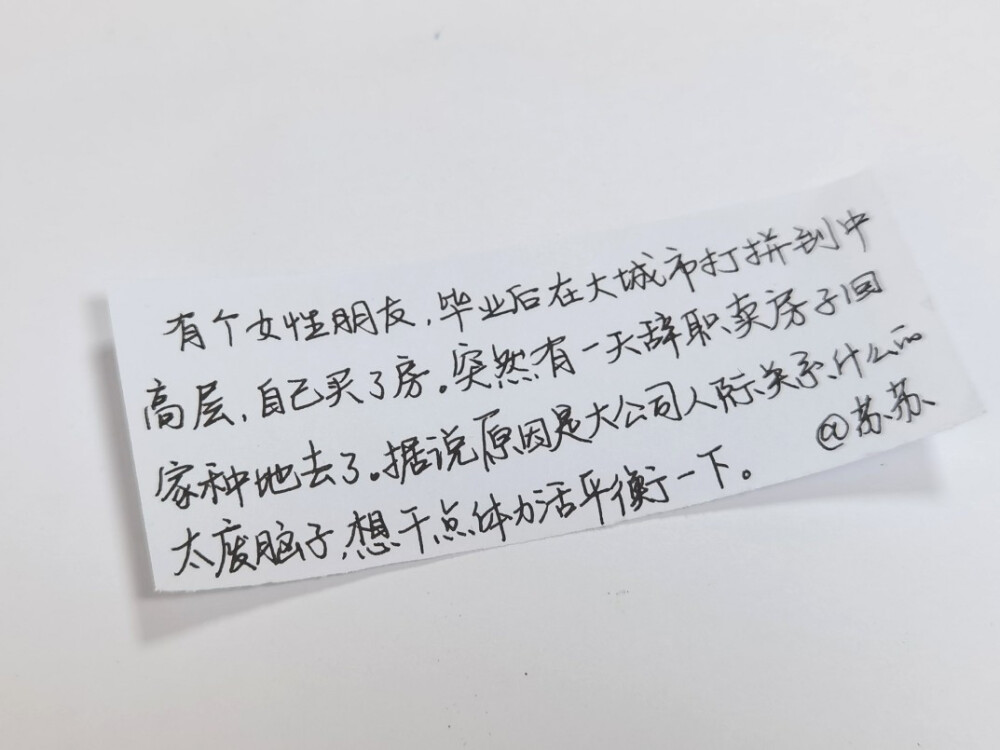 有个女性朋友,毕业后在大城市打拼到中
高层,自己买了房。突然有一天辞职卖房子回
家种地去了。据说原因是大公司人际关系什么的
太废脑子,想干点体力活平衡一下。
@苏苏